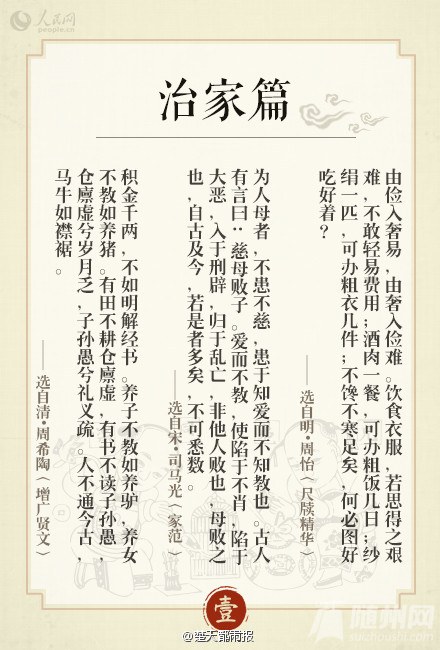 人民网
people.cn
治家篇
由俭入奢易，由奢入俭难。饮食衣服，若思得之艰
难，不敢轻易费用；酒肉一餐，可办粗饭几日；纱
绢一匹，可办粗衣几件；不馋不寒足矣，何必图好
吃好着？
——选自明·周怡（尺牍精华）
为人母者，不患不慈，患于知爱而不知教也。古人
有言曰：慈母败子。爱而不教，使陷于不肖，陷于
大恶，入于刑辟，归于乱亡，非他人败也，母败之
也，自古及今，若是者多矣，不可悉数。
——选自宋·司马光（家范）
积金千两，不如明解经书。养子不教如养驴，养女
不教如养猪。有田不耕仓廪虚，有书不读子孙愚，
仓廪虚兮岁月乏，子孙愚兮礼义疏。人不通今古，
马牛如襟裾。
——选自清·周希陶（增广贤文）
壹
@楚天都市报
随州网